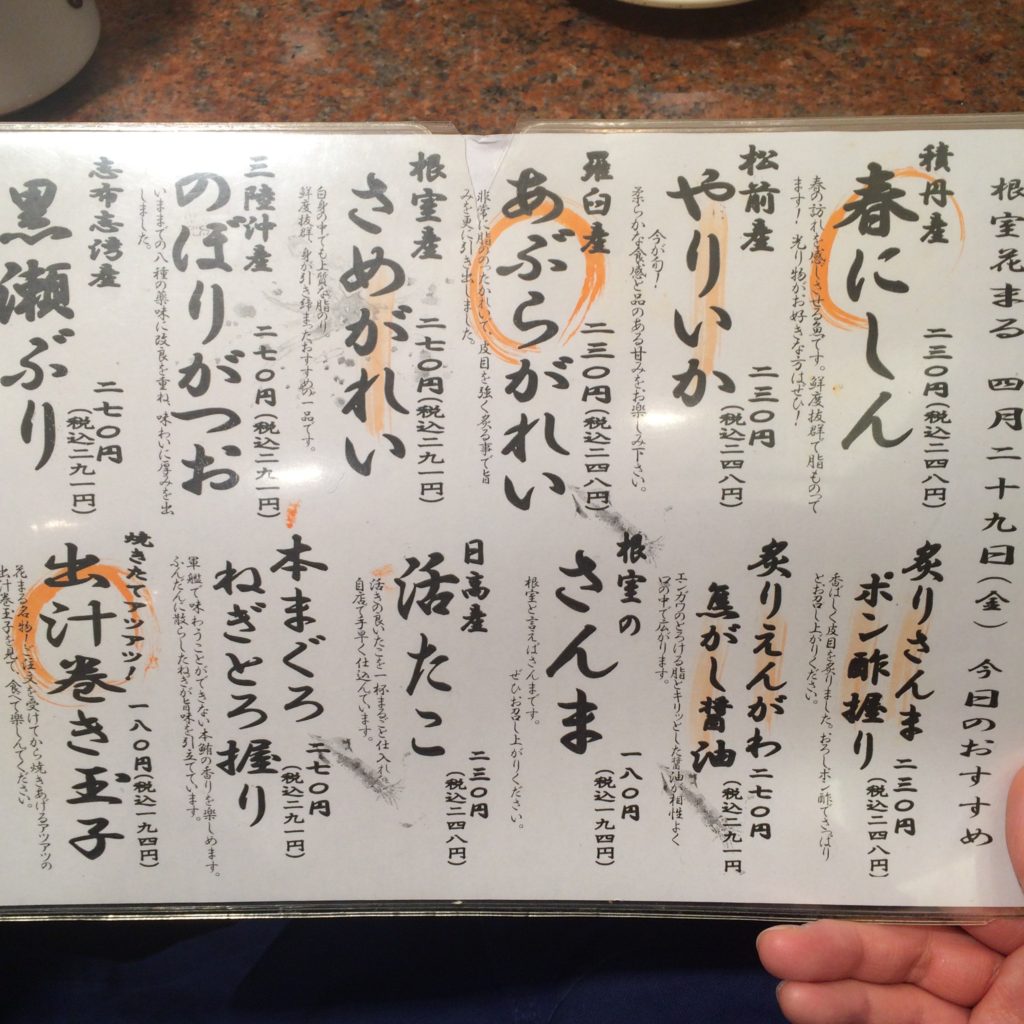 根室花まる 四月二十九日(金) 今日のおすすめ
積丹産
春にしん
二三〇円(税込二四八円)
春の訪れを感じさせる魚です。鮮度抜群で脂ものって
ます!光り物がお好きな方はぜひ!
松前産
やりいか
二三〇円
(税込二四八円)
今が旬!
柔らかな食感と品のある甘みをお楽しみ下さい。
羅臼産
あぶらがれい
二三〇円(税込二四八円)
非常に脂ののったかれいで、皮目を強く炙る事で旨
みを更に引き出しました。
根室産
さめがれい
二七〇円(税込二九一円)
白身の中でも上質な脂のり
鮮度抜群、身が引き締まったおすすめの一品です。
三陸沖産
のぼりがつお
二七〇円(税込二九一円)
いままでの八種の薬味に改良を重ね、味わいに厚みを出
しました。
志布志湾産
黒瀬ぶり
二七〇円
(税込二九一円)
炙りさんま
ポン酢握り
二三〇円
(税込二四八円)
香ばしく皮目を炙りました。おろしポン酢でさっぱり
とお召し上がりください。
炙りえんがわ
焦がし醤油
二七〇円
(税込二九一円)
エンガワのとろける脂とキリッとした醤油が相性よく
口の中で広がります。
根室の
さんま
一八〇円
(税込一九四円)
根室と言えばさんまです。
ぜひお召し上がりください。
日高産
活たこ
二三〇円
(税込二四八円)
活きの良いたこを一杯まるごと仕入れ。
自店で手早く仕込んでいます。
本まぐろ
ねぎとろ握り
二七〇円
(税込二九一円)
軍艦で味わうことができない本鮪の香りを楽しめます。
ふんだんに散らしたねぎが旨味を引立てています。
焼きたてアツアツ!
出汁巻き玉子
一八〇円(税込一九四円)
花まる名物!ご注文を受けてから焼きあげるアツアツの
出汁巻玉子を見て、食べて楽しんでください。